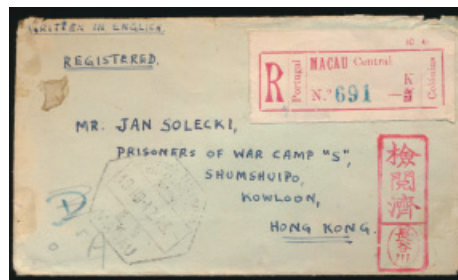 WRITTEN IN ENGLISH.
REGISTERED.
R
Portugal
MACAU Central
N.º 691
K
Colónias
MR. JAN SOLECKI,
PRISONERS OF WAR CAMP "S",
SHUMSHUIPO,
KOWLOON,
HONG KONG.
檢閲濟